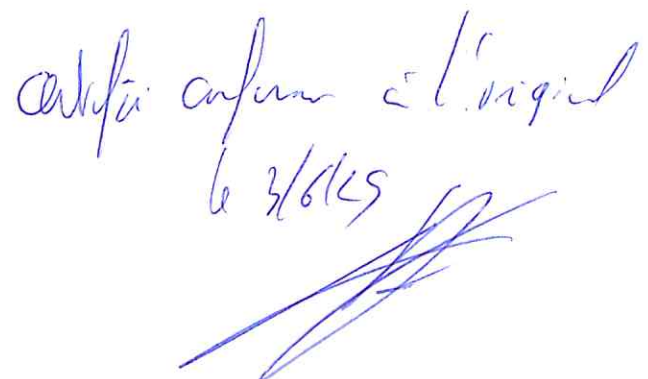 certifié conforme à l'original
le 3/6/25